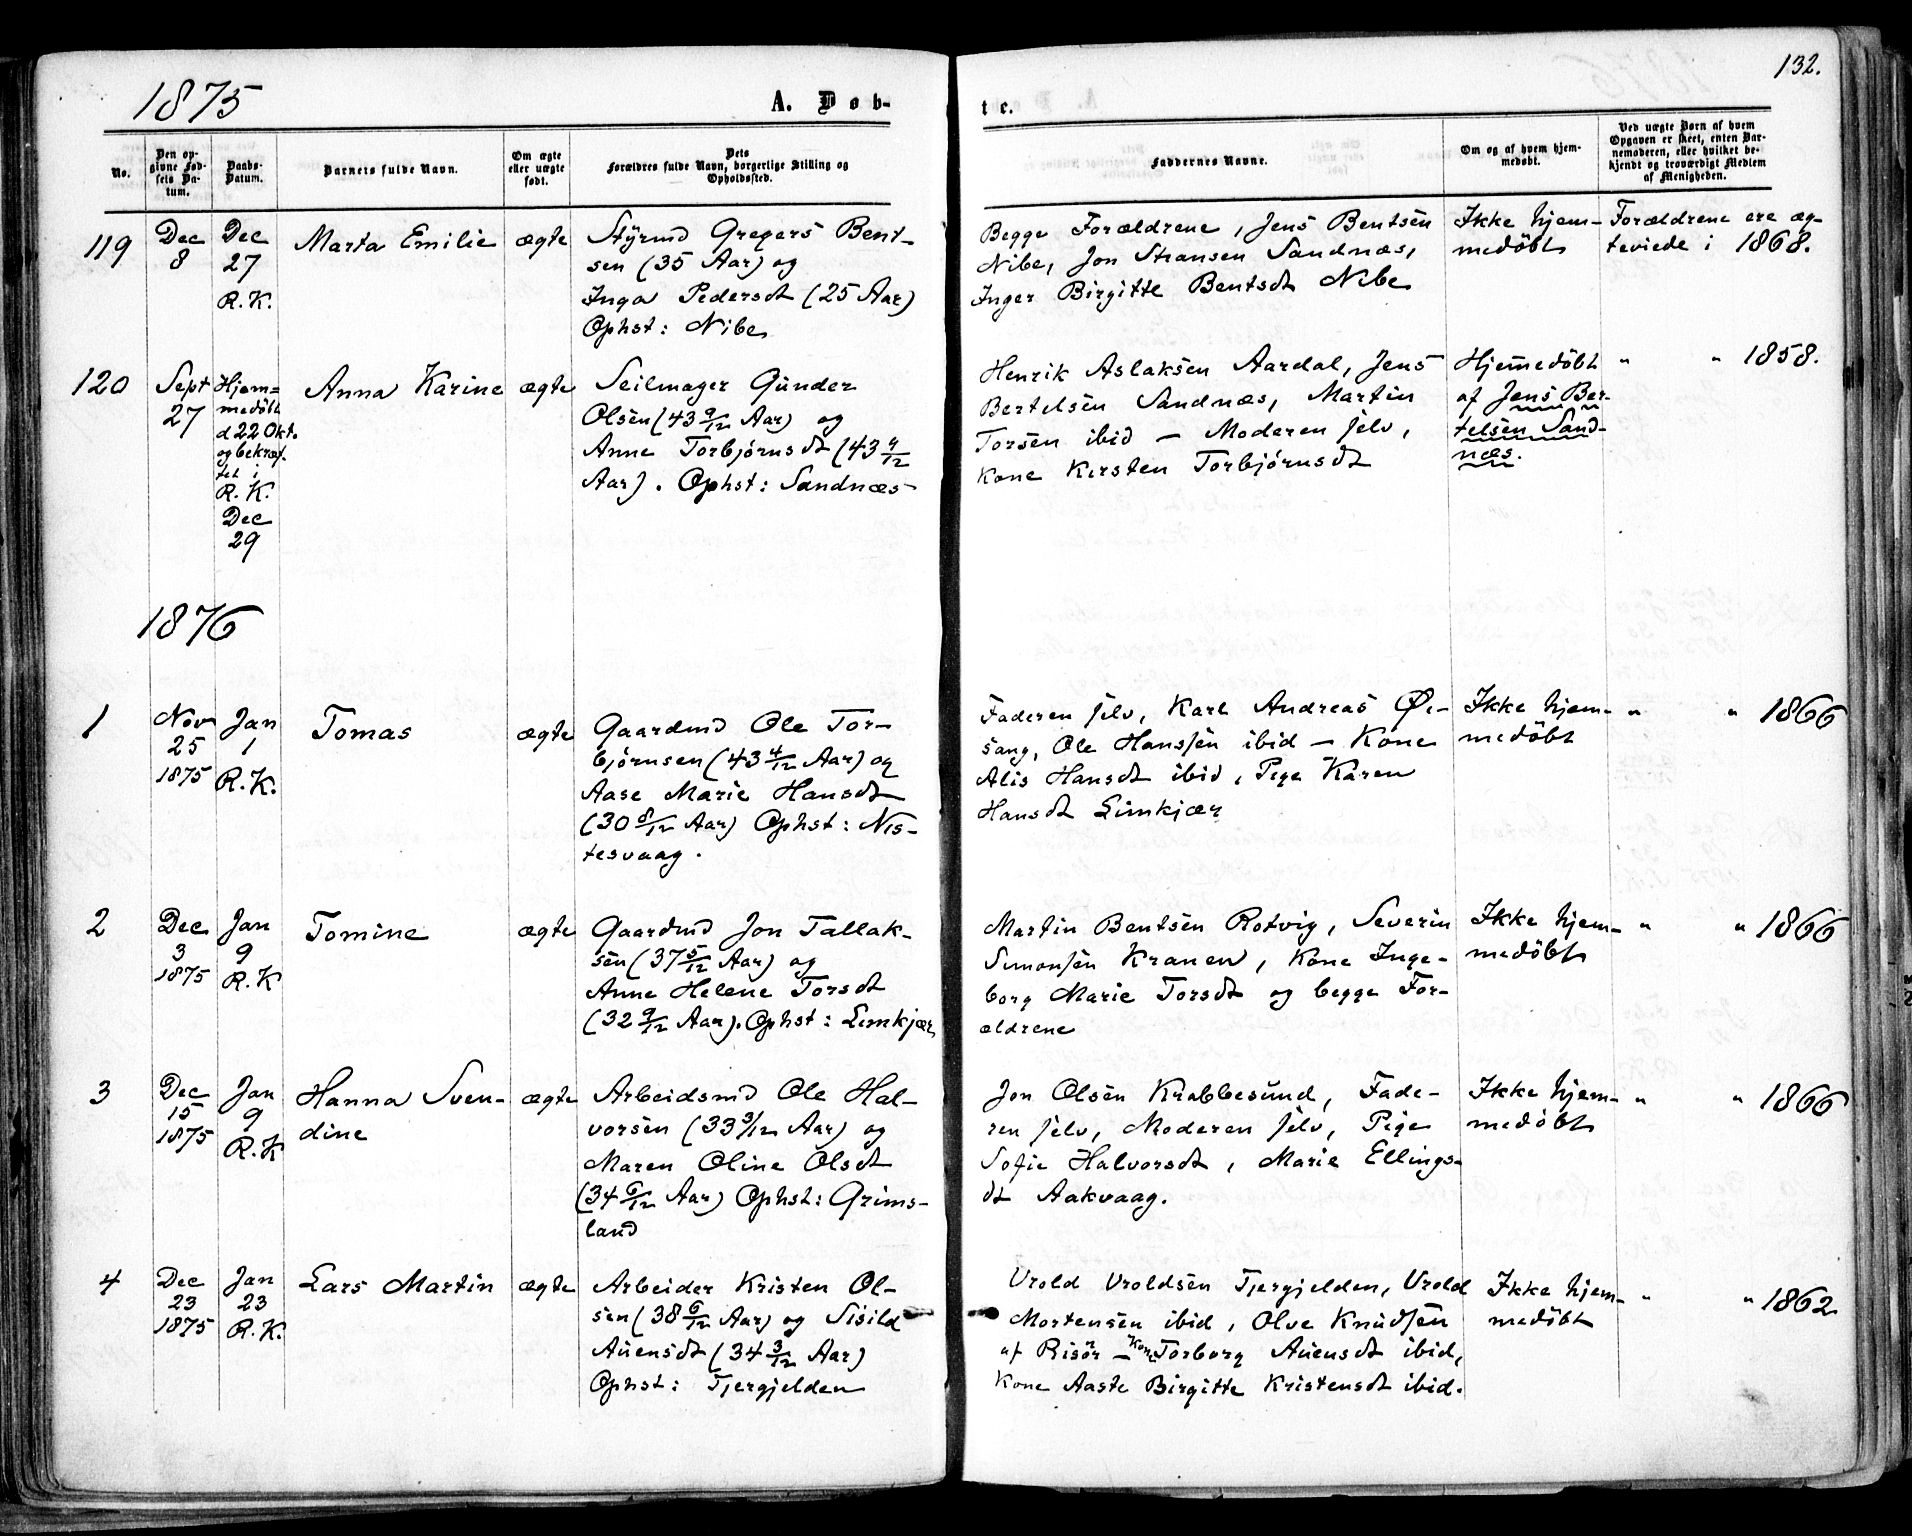 132.
1875
A. Døb-
te.
No.
Den op-
givne Fød-
sels Da-
tum.
Daabs-
Datum.
Barnets fulde Navn.
Om ægte
eller uægte
født.
Dets
Forældres fulde Navn, borgerlige Stilling og
Opholdssted.
Faddernes Navne.
Om og af hvem hjem-
medøbt.
Ved uægte Børn af hvem
Opgaven er skeet, enten Bar-
nemoderen, eller hvilket be-
kjendt og troværdigt Medlem
af Menigheden.
119
Dec
8
Dec
27
R.K.
Marta Emilie
ægte
Styrmd Gregers Bent-
sen (35 Aar) og
Inga Pedersdt (25 Aar)
Ophst: Nibe
Begge Forældrene, Jens Bentsen
Nibe, Jon Stransen Sandnæs,
Inger Birgitte Bentsdt Nibe
Ikke hjem-
medøbt
Forældrene ere æg-
teviede i 1868.
120
Sept
27
Hjem-
medøbt
d 22 Okt.
og bekræf.
tet i
R.K.
Dec
29
Anna Karine
ægte
Seilmager Gunder
Olsen (43 9/12 Aar) og
Anne Torbjørnsdt (43 9/12
Aar). Ophst: Sandnæs
Henrik Aslaksen Aardal, Jens
Bertelsen Sandnæs, Martin
Torsen ibid — Moderen selv,
Kone Kirsten Torbjørnsdt
Hjemmedøbt
af Jens Ber-
telsen Sand-
næs.
" " 1858.
1876
1
Nov
25
1875
Jan
1
R.K.
Tomas
ægte
Gaardmd Ole Tor-
bjørnsen (43 4/12 Aar) og
Aase Marie Hansdt
(30 8/12 Aar) Ophst: Nis-
tesvaag.
Faderen selv, Karl Andreas Øi-
sang, Ole Hanssen ibid — Kone
Alis Hansdt ibid, Pige Karen
Hansdt Limkjær
Ikke hjem-
medøbt
" " 1866
2
Dec
3
1875
Jan
9
R.K
Tomine
ægte
Gaardmd Jon Tallak-
sen (37 5/12 Aar) og
Anne Helene Torsdt
(32 9/12 Aar). Ophst: Limkjær
Martin Bentsen Rotvig, Severin
Simonsen Kranen, Kone Inge-
borg Marie Torsdt og begge For-
ældrene
Ikke hjem-
medøbt
" " 1866
3
Dec
15
1875
Jan
9
R.K
Hanna Sven-
dine
ægte
Arbeidsmd Ole Hal-
vorsen (33 3/12 Aar) og
Maren Oline Olsdt
(34 6/12 Aar) Ophst: Grims-
land
Jon Olsen Krabbesund, Fade-
ren selv, Moderen selv, Pige
Sofie Halvorsdt, Marie Ellings-
dt Aakvaag.
Ikke hjem-
medøbt
" " 1866
4
Dec
23
1875
Jan
23
R.K.
Lars Martin
ægte
Arbeider Kristen Ol-
sen (38 6/12 Aar) og Sisild
Auensdt (34 3/12 Aar)
Ophst: Tjergjelden
Vrold Vroldsen Tjergjelden, Vrold
Mortensen ibid, Olve Knudsen
af Risør — Kone Torborg Auensdt ibid,
Kone Aaste Birgitte Kristensdt ibid.
Ikke hjem-
medøbt
" " 1862